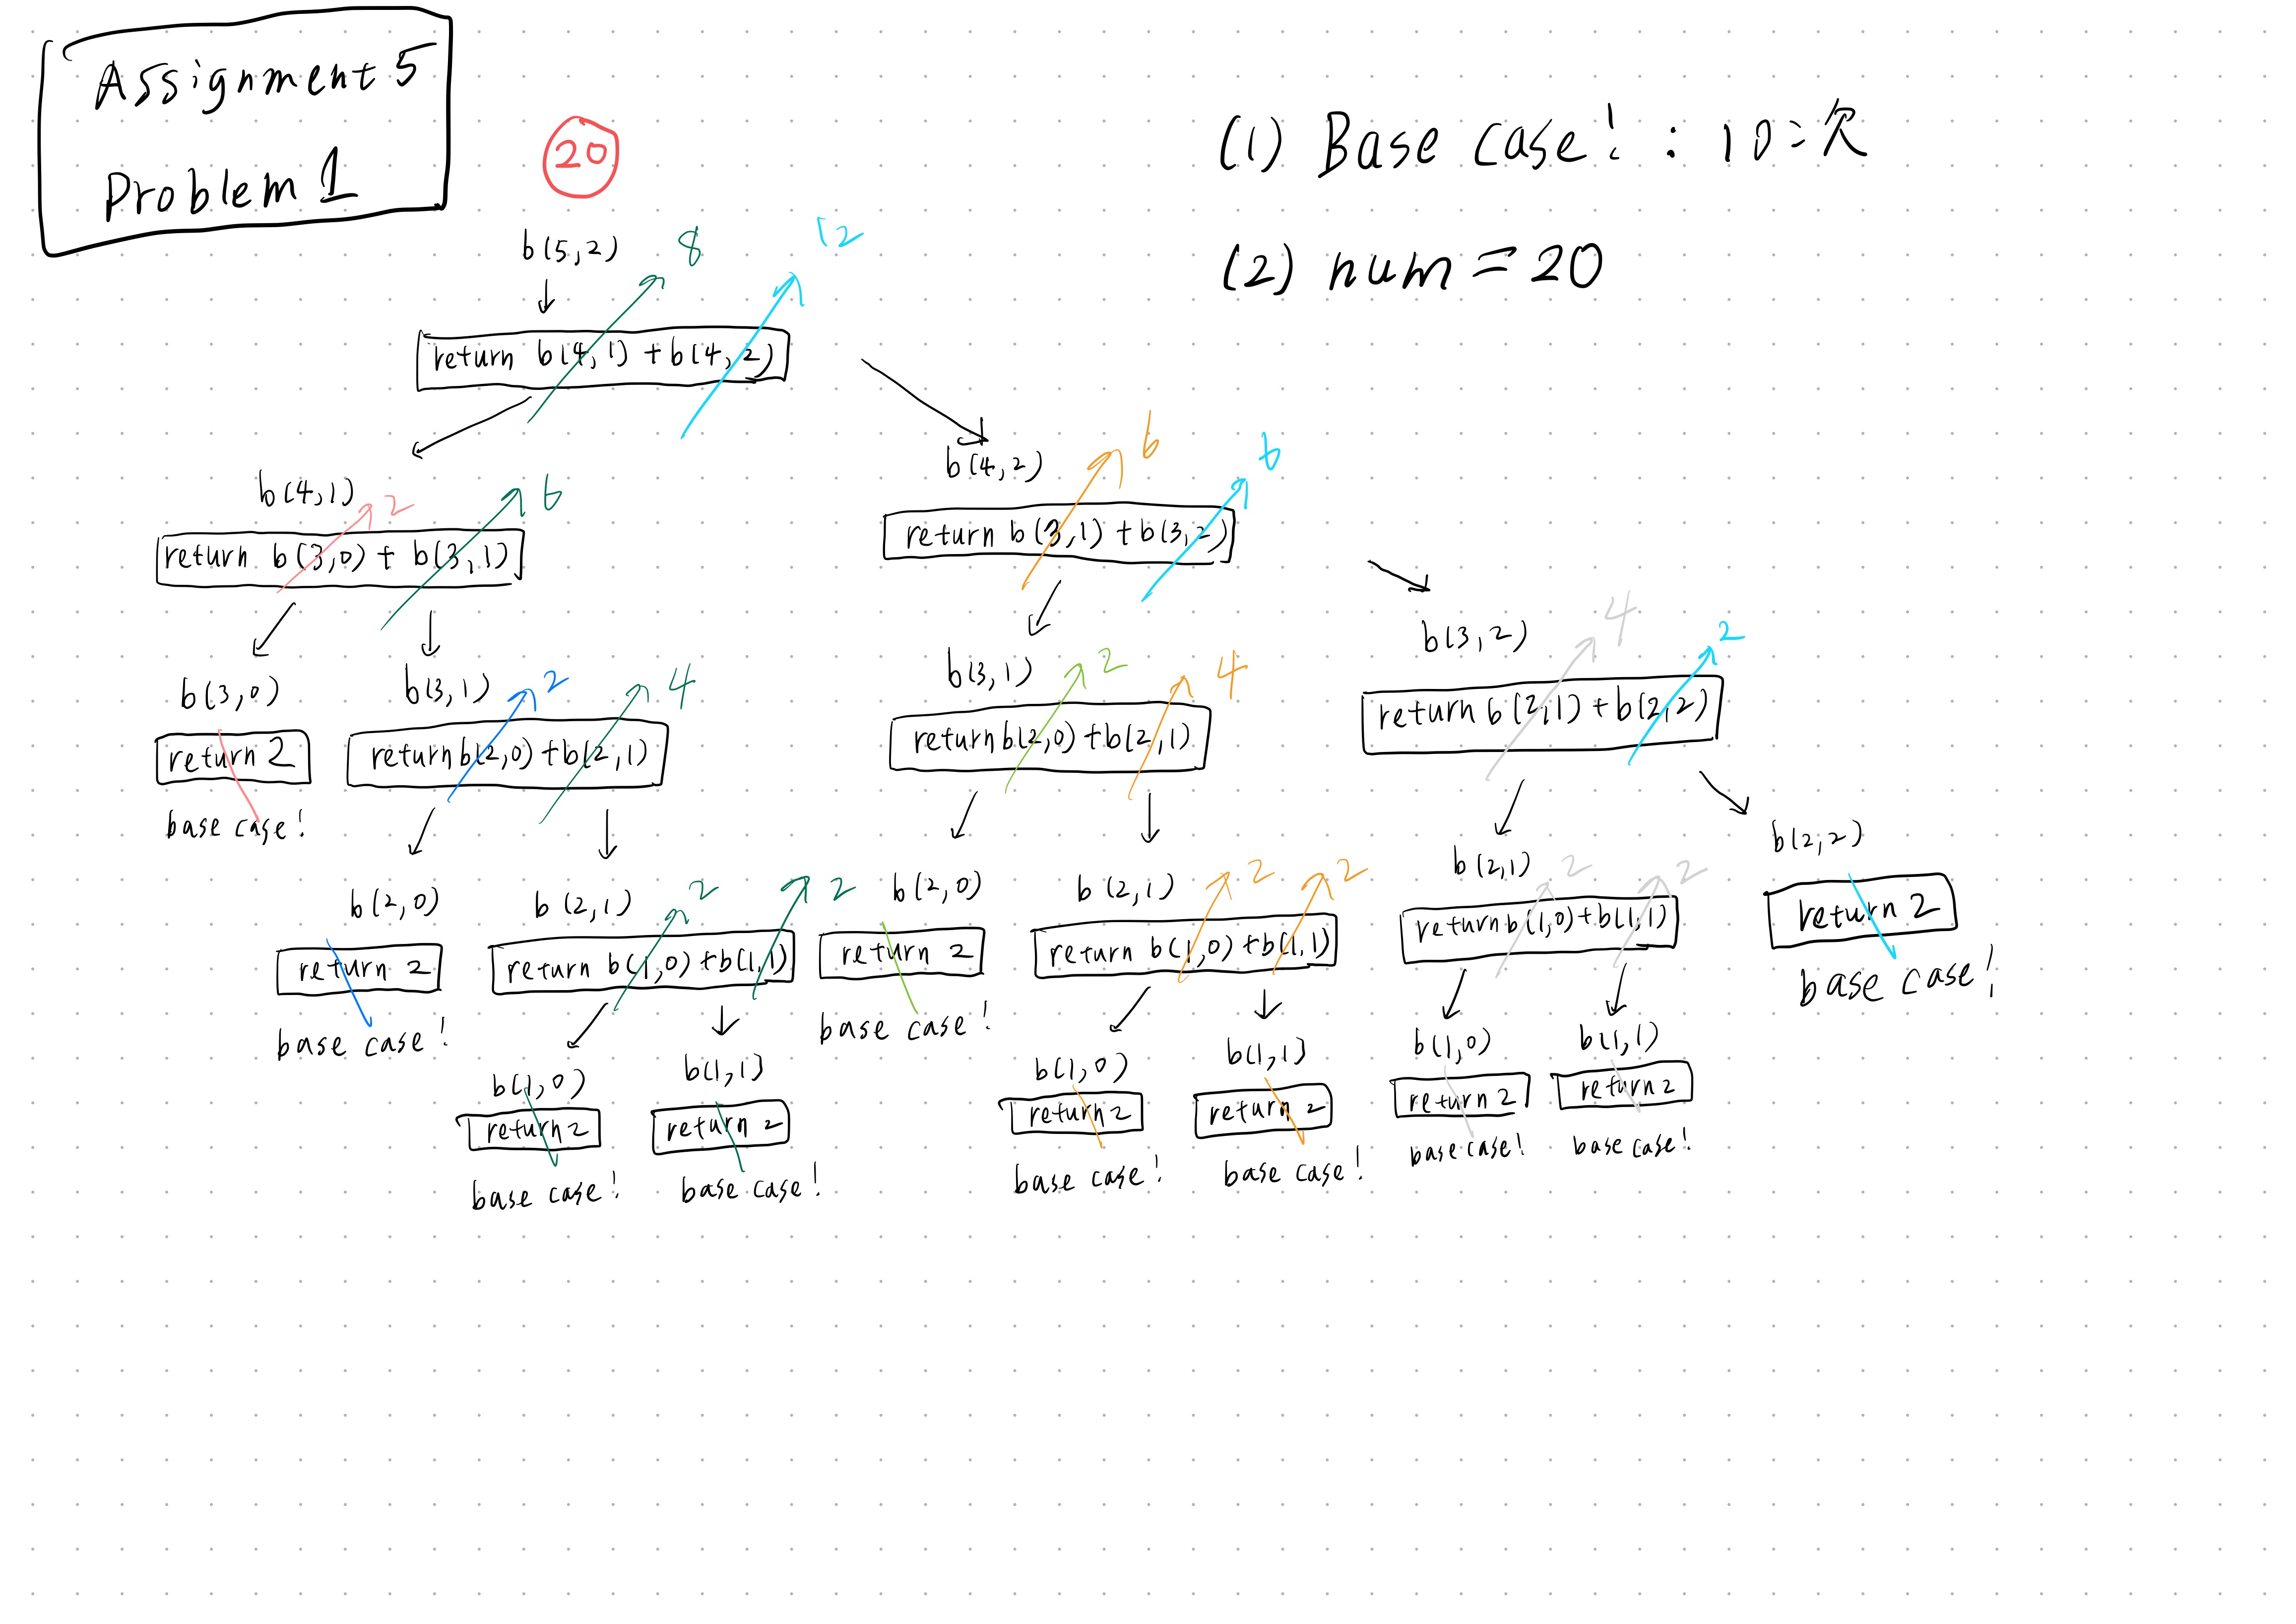 Assignment 5
Problem 1
20
(1) Base case! : 10次
(2) num = 20
b(5,2)
8
12
return b(4,1) + b(4,2)
b(4,1)
2
6
return b(3,0) + b(3,1)
b(4,2)
6
6
return b(3,1) + b(3,2)
b(3,0)
return 2
base case!
b(3,1)
2
4
return b(2,0) + b(2,1)
b(3,1)
2
4
return b(2,0) + b(2,1)
b(3,2)
4
2
return b(2,1) + b(2,2)
b(2,0)
return 2
base case!
b(2,1)
2
2
return b(1,0) + b(1,1)
b(2,0)
return 2
base case!
b(2,1)
2
2
return b(1,0) + b(1,1)
b(2,1)
2
2
return b(1,0) + b(1,1)
b(2,2)
return 2
base case!
b(1,0)
return 2
base case!
b(1,1)
return 2
base case!
b(1,0)
return 2
base case!
b(1,1)
return 2
base case!
b(1,0)
return 2
base case!
b(1,1)
return 2
base case!